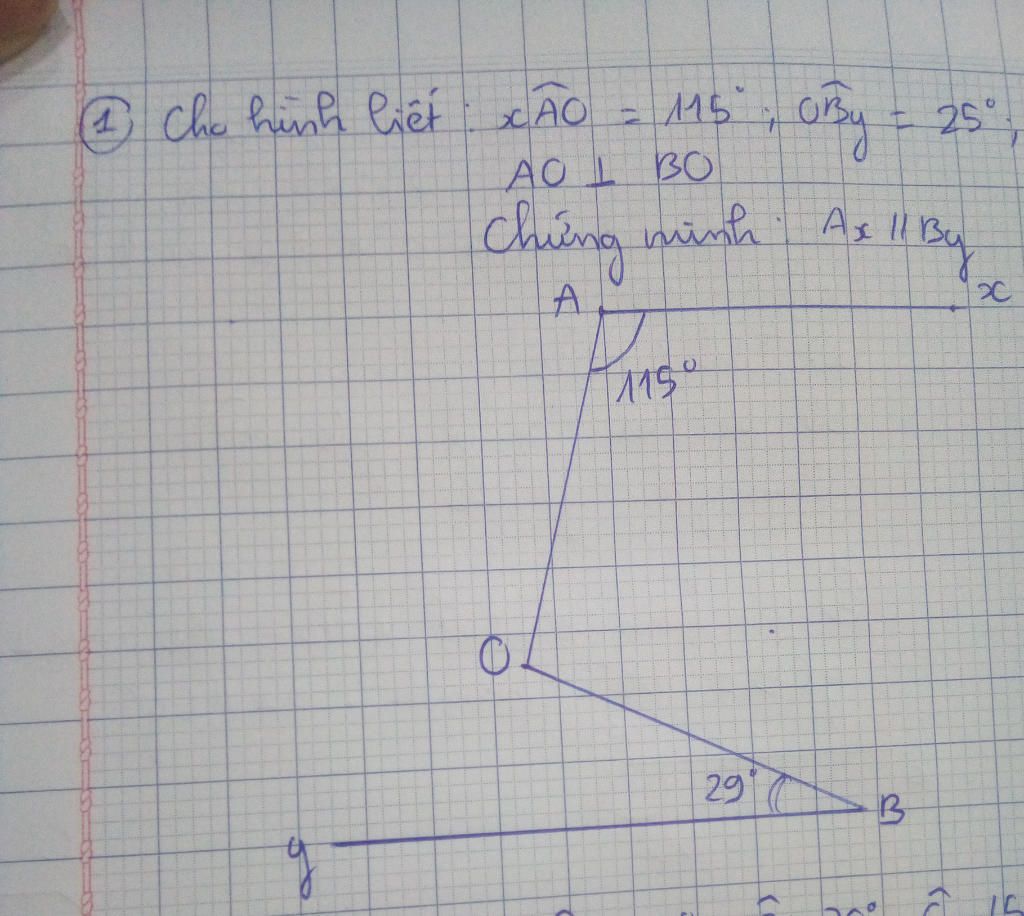 ① Cho hình biết: xÂO = 115°; OB̂y = 25°;
AO ⊥ BO
Chứng minh: Ax // By
A x
115°
O
29° B
y